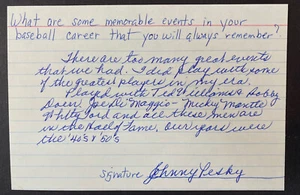 What are some memorable events in your
baseball career that you will always remember?
There are too many great events
that we had. I did play with some
of the greatest players in my era.
Played with Ted Williams & Bobby
Doerr Joe Di Maggio - Mickey Mantle
Whitey Ford and ace these men are
in the Hall of Fame, our years were
the '40s & '50's
signature Johnny Pesky